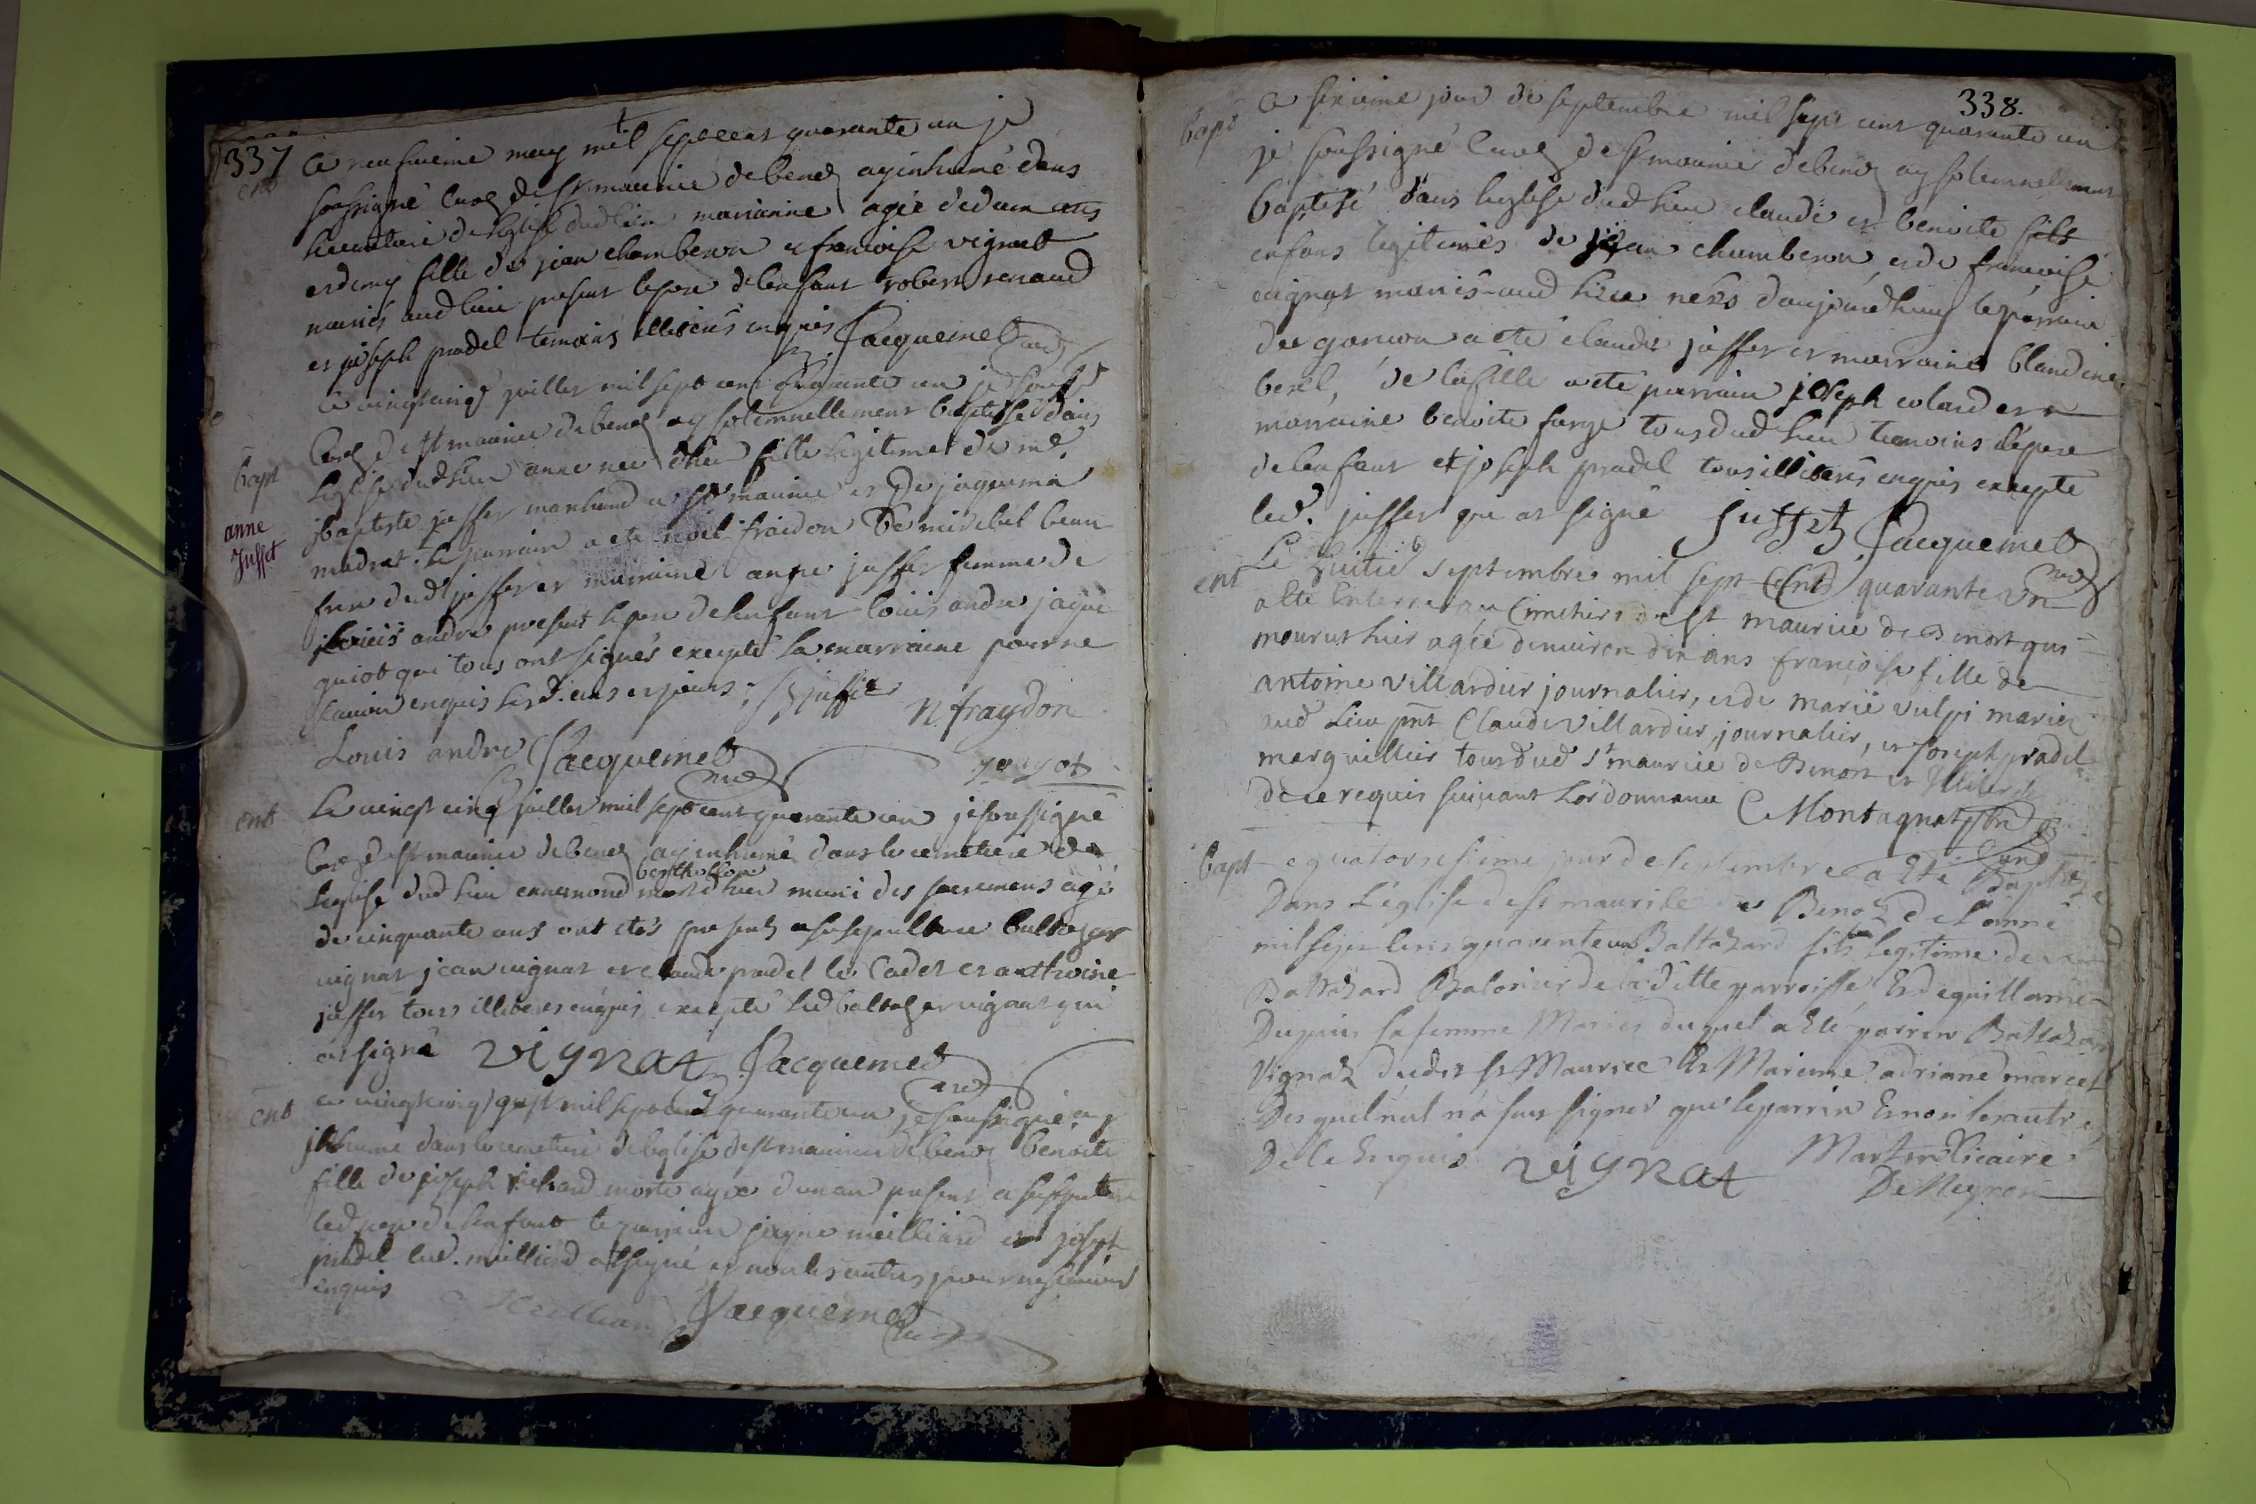 337
ent
ce neufvieme may mil sept cent quarante un je
soussigné Curé de st maurice de benos ay inhumé dans
le cimetiere de leglise dud lieu marianne agée dedeux ans
et demy fille de jean chamberon et francoise vignat
mariés aud lieu present le pere de lenfant robert renaud
et joseph pradel temoins illiterés enquis Jacquemet curé
ce vingtcinq juillet mil sept cent quarante un je soussé
bapt
anne
Juffet
Curé de st maurice de benos ay solemnellement baptisé dans
leglise dud lieu anne née dhier fille legitime de me.
jbaptiste juffet marchand a st maurice et de jaquema
madrat. le parrain a eté noel fraidon de mirebel beau
frere dud juffet et marraine anne juffet femme de
louis andre present le pere de lenfant louis andre jaque
guiot qui tous ont signés excepté la marraine pour ne
scavoir enquis lesd. ans et jours; Bjuffet
n fraydon
Louis andre Jacquemet curé
ent
Le vingt cinq juillet mil sept cent quarante un je soussigné
Curé de st maurice de benos ay inhumé dans le cemetiere de
leglise dud lieu mort dhier muni des sacremens agé
de cinquante ans ont etés presents a sa sepulture baltazar
vignat jean vignat et claude pradel le Cadet et anthoine
juffet tous illiterés enquis excepté led baltazar vignat qui
at signé vignat Jacquemet curé
ent
ce vingtcinq mil sept cent quarante un je soussigné ay
inhumé dans le cemetiere de leglise de st maurice de benos benoite
fille de joseph richard morte agée dun an present a sa sepulture
led pere de lenfant le parrain jaque meilliard et joseph
pradel led. meilliard at signé et non les autres pour ne scavoir
enquis
Jacquemet curé
338.
bapt
ce sixieme jour de septembre mil sept cent quarante un
je soussigné Curé de st maurice de benos ay solemnellement
baptisé dans leglise dud lieu claude et benoite fils
enfans legitimes de jean chamberon et de francoise
vignat mariés aud lieu nées daujourdhuy le parrain
du garcon a eté claude juffet et marraine blandine
berel, de la fille a eté parrain joseph colard et
marraine benoite farge tous dud lieu temoins le pere
de lenfant et joseph pradel tous illiterés enquis excepté
led. juffet qui at signé Juffet Jacquemet curé
ent
Le huitie septembre mil sept cent quarante un
a été enterrée au Cimetiere de st maurice de Benost qui
mourut hier agée denviron dix ans françoise fille de
antoine villardier journalier, et de marie vulpi mariez
aud lieu pnt Claude villardier, journalier, et joseph pradel
marguillier tous dud st maurice de Benost et Illiterés
de ce requis suivant Lordonnance C Montagnat ptre
curé
bapt
ce quatorsesieme jour de septembre a été Baptizé
Dans L'église de st maurice de Benos de L'année
mil sept cens quarente un Baltazard fils Legitime de
Baltazard Balorier de la ditte parroisse Et de guillame
Dupuis sa femme Mariés duquel a été parrin Baltazar
Vignat dudit st Maurice Et Mareine adriane marcel
Desquels nul n'a sceu signer que le parrin Et non les autres
De ce Enquis vignat Martin vicaire
De Neyron